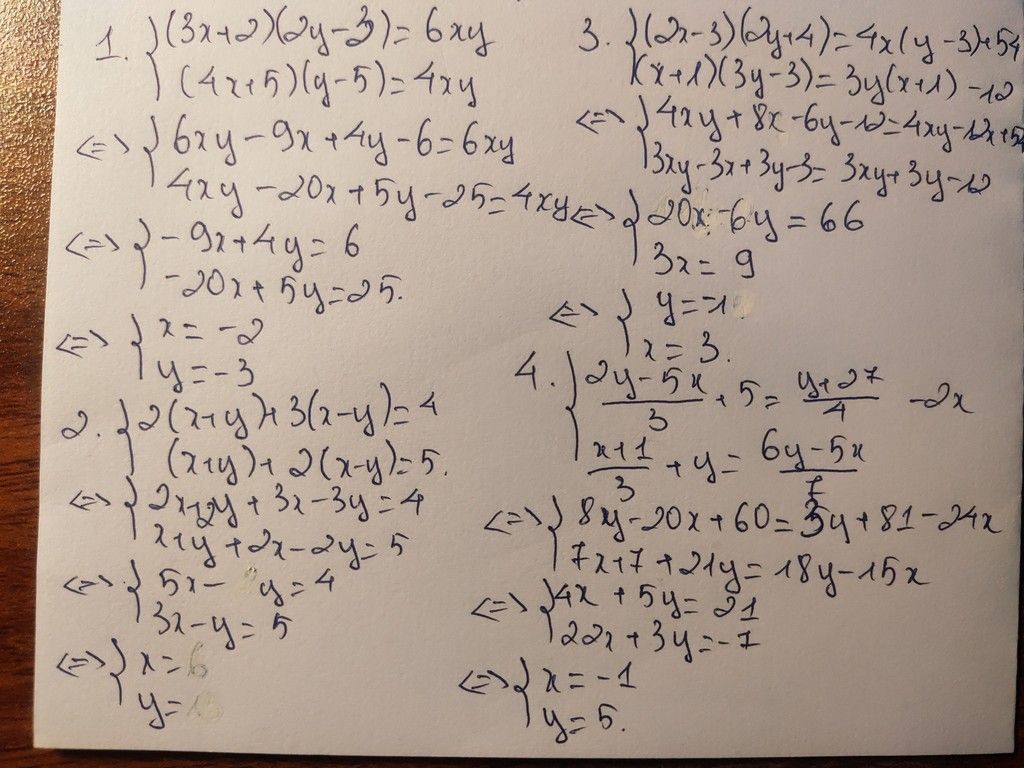 1. { (3x+2)(2y-3) = 6xy
(4x+5)(y-5) = 4xy
<=> { 6xy - 9x + 4y - 6 = 6xy
4xy - 20x + 5y - 25 = 4xy
<=> { - 9x + 4y = 6
- 20x + 5y = 25.
<=> { x = -2
y = -3
2. { 2(x+y) + 3(x-y) = 4
(x+y) + 2(x-y) = 5.
<=> { 2x+2y + 3x - 3y = 4
x+y + 2x - 2y = 5
<=> { 5x - y = 4
3x - y = 5
<=> { x =
y =
3. { (2x-3)(2y+4) = 4x(y-3)+54
(x+1)(3y-3) = 3y(x+1) - 12
<=> { 4xy + 8x - 6y - 12 = 4xy - 12x + 54
3xy - 3x + 3y - 3 = 3xy + 3y - 12
<=> { 20x - 6y = 66
3x = 9
<=> { y = -1
x = 3.
4. { (2y-5x)/3 + 5 = (y+27)/4 - 2x
(x+1)/3 + y = (6y-5x)/7
<=> { 8y - 20x + 60 = 3y + 81 - 24x
7x + 7 + 21y = 18y - 15x
<=> { 4x + 5y = 21
22x + 3y = -7
<=> { x = -1
y = 5.